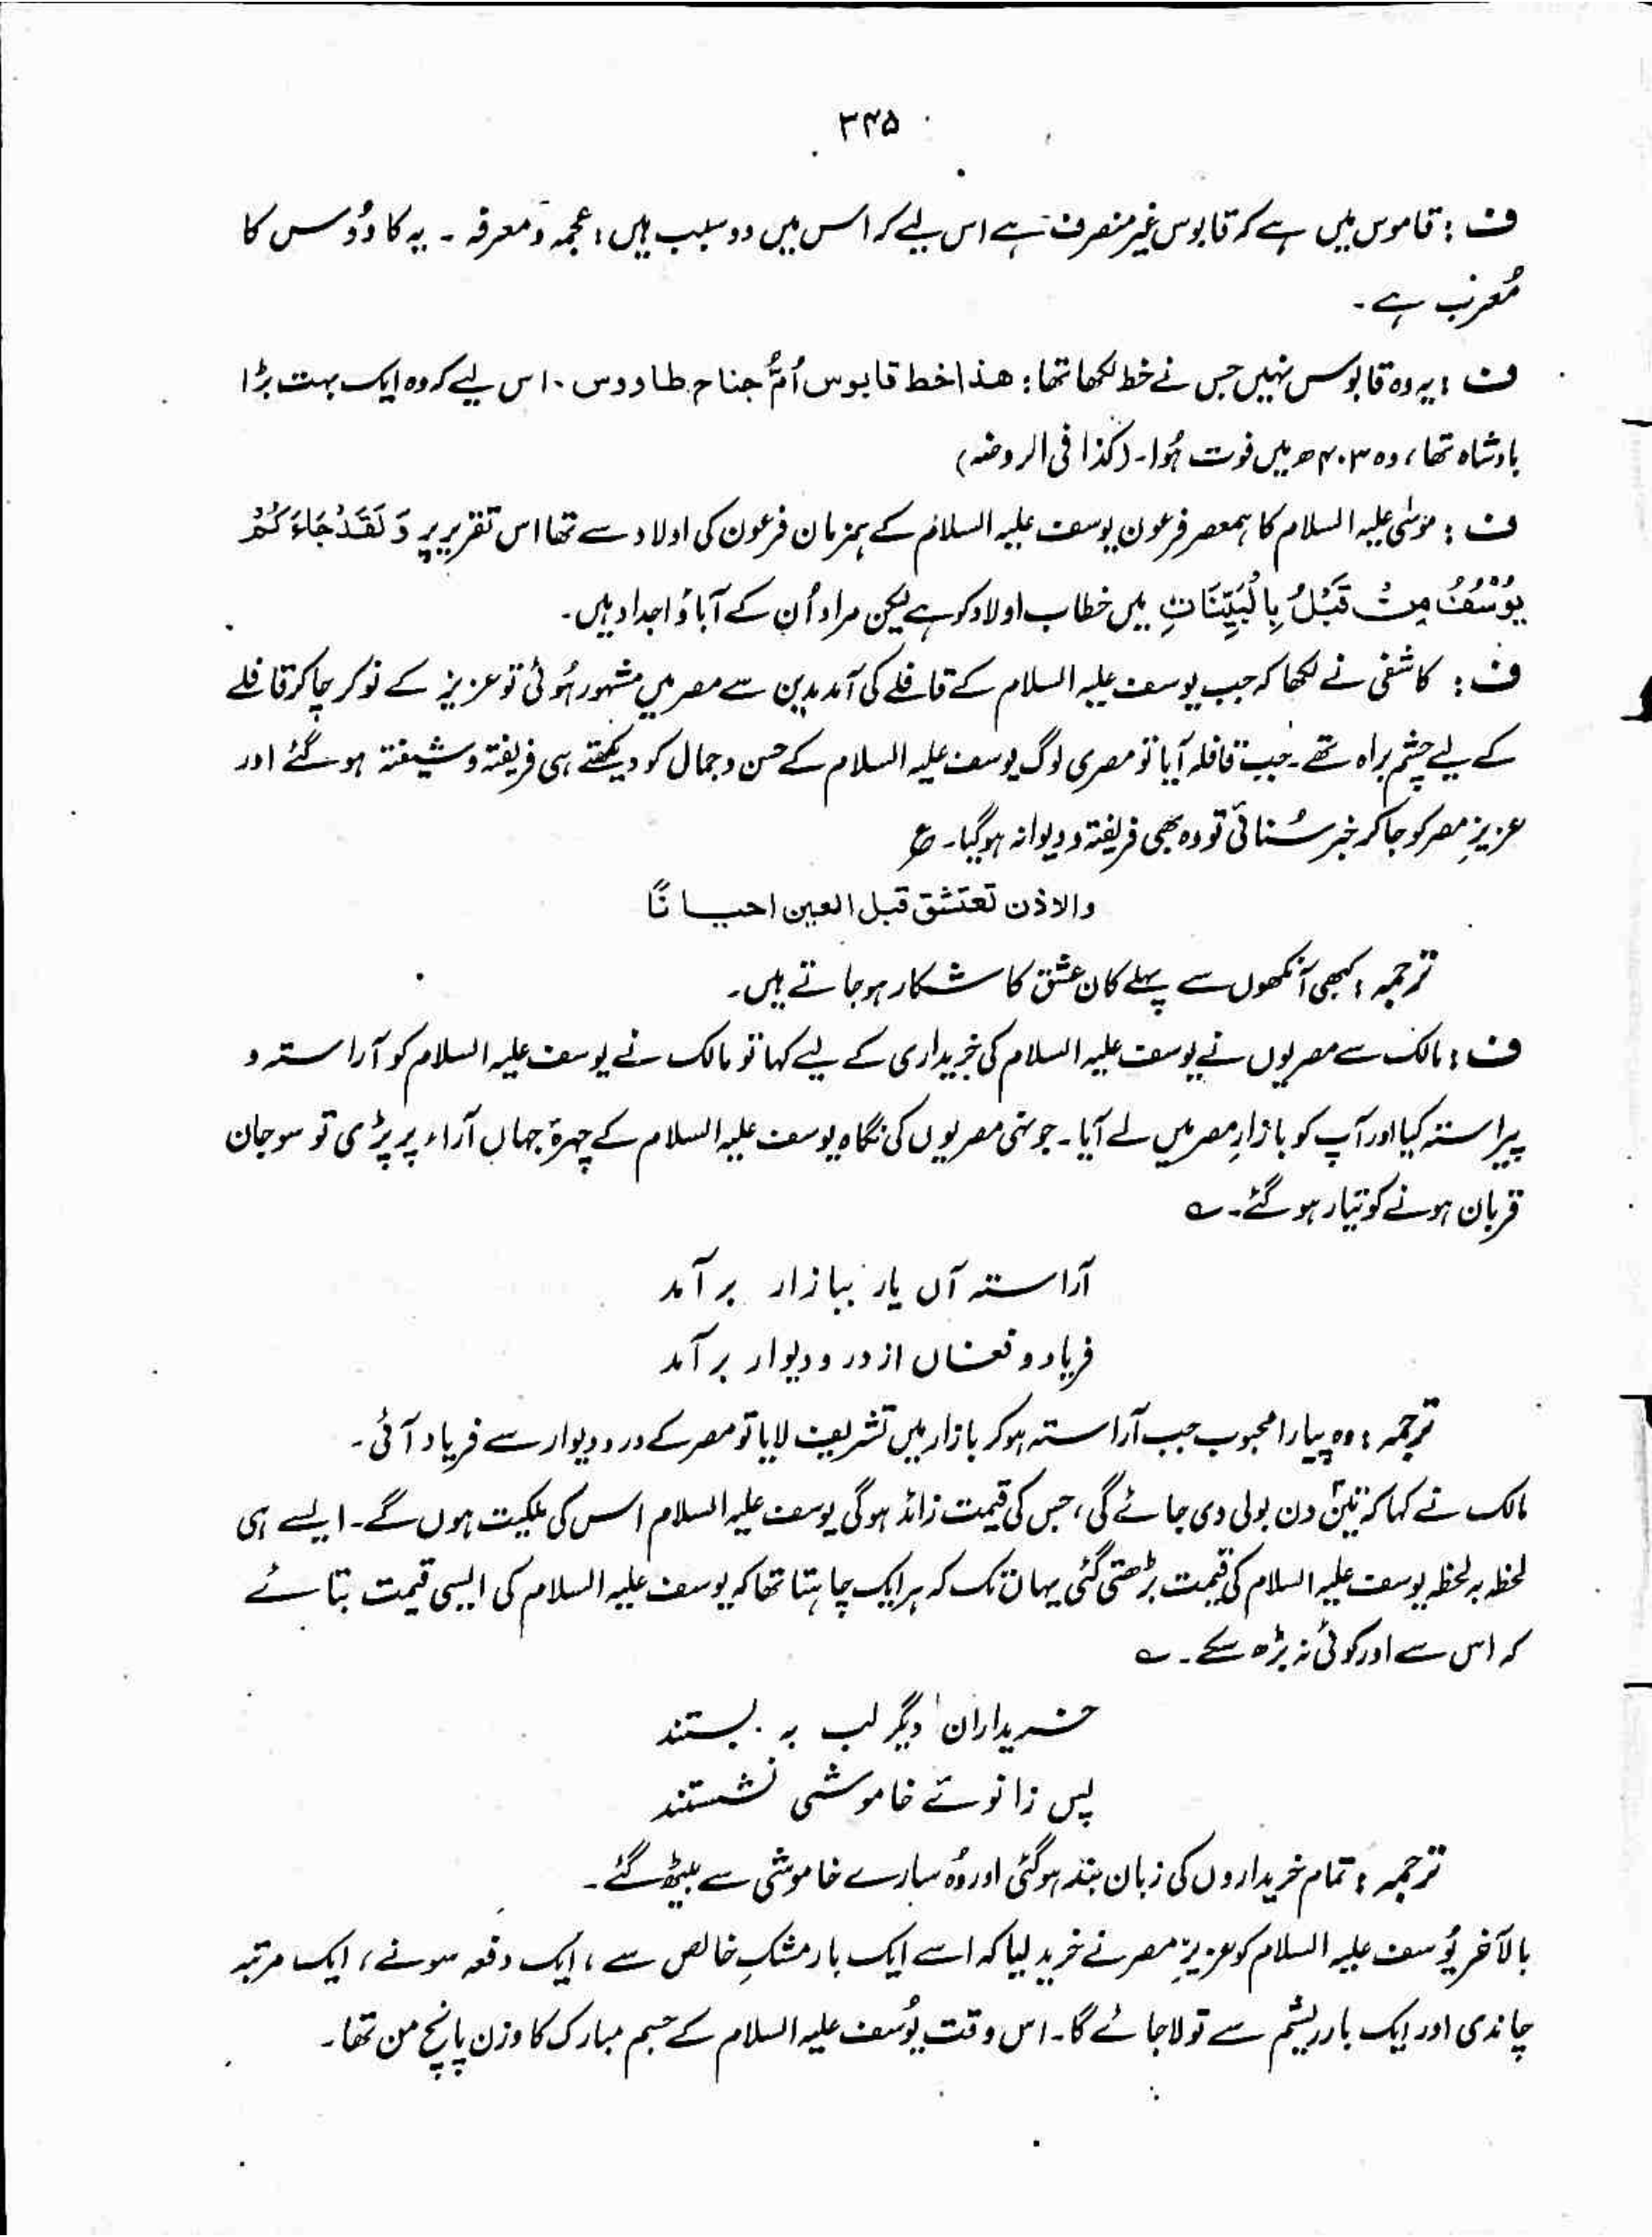 ۳۴۵
ف : قاموس میں ہے کہ قابوس غیر منصرف ہے اس لیے کہ اس میں دو سبب ہیں : عجمہ و معرفہ ۔ یہ کاؤوس کا
مُعرب ہے ۔
ف : یہ وہ قابوس نہیں جس نے خط لکھا تھا : ھذا خط قابوس اُمّ جناح طاووس ۔ اس لیے کہ وہ ایک بہت بڑا
بادشاہ تھا ، وہ ۴۰۳ھ میں فوت ہُوا ۔ (کذا فی الروضہ)
ف : موسٰی علیہ السلام کا ہمعصر فرعون یوسف علیہ السلام کے ہمزمان فرعون کی اولاد سے تھا اس تقریر پر وَلَقَدْ جَاءَكُمْ
يُوْسُفُ مِنْ قَبْلُ بِالْبَيِّنَاتِ میں خطاب اولاد کو ہے لیکن مراد اُن کے آباؤ اجداد ہیں ۔
ف : کاشفی نے لکھا کہ جب یوسف علیہ السلام کے قافلے کی آمد مدین سے مصر میں مشہور ہُوئی تو عزیز کے نوکر چاکر قافلے
کے لیے چشم براہ تھے ۔ جب قافلہ آیا تو مصری لوگ یوسف علیہ السلام کے حسن و جمال کو دیکھتے ہی فریفتہ و شیفتہ ہو گئے اور
عزیزِ مصر کو جا کر خبر سُنائی تو وہ بھی فریفتہ و دیوانہ ہوگیا ۔ ع
والاذن تعتشق قبل العین احیانًا
ترجمہ : کبھی آنکھوں سے پہلے کان عشق کا شکار ہو جاتے ہیں ۔
ف : مالک سے مصریوں نے یوسف علیہ السلام کی خریداری کے لیے کہا تو مالک نے یوسف علیہ السلام کو آراستہ و
پیراستہ کیا اور آپ کو بازارِ مصر میں لے آیا ۔ جونہی مصریوں کی نگاہ یوسف علیہ السلام کے چہرۂ جہاں آراء پر پڑی تو سو جان
قربان ہونے کو تیار ہو گئے ۔ ؎
آراستہ آں یار ببازار بر آمد
فریاد و فغاں از در و دیوار بر آمد
ترجمہ : وہ پیارا محبوب جب آراستہ ہو کر بازار میں تشریف لایا تو مصر کے در و دیوار سے فریاد آئی ۔
مالک نے کہا کہ تین دن بولی دی جائے گی ، جس کی قیمت زائد ہوگی یوسف علیہ السلام اس کی ملکیت ہوں گے ۔ ایسے ہی
لحظہ بہ لحظہ یوسف علیہ السلام کی قیمت بڑھتی گئی یہاں تک کہ ہر ایک چاہتا تھا کہ یوسف علیہ السلام کی ایسی قیمت بتائے
کہ اس سے اور کوئی نہ بڑھ سکے ۔ ؎
خریداران دیگر لب بہ بستند
پس زانوئے خاموشی نشستند
ترجمہ : تمام خریداروں کی زبان بند ہوگئی اور وُہ سارے خاموشی سے بیٹھ گئے ۔
بالآخر یُوسف علیہ السلام کو عزیزِ مصر نے خرید لیا کہ اسے ایک بار مشکِ خالص سے ، ایک دفعہ سونے ، ایک مرتبہ
چاندی اور ایک بار ریشم سے تولا جائے گا ۔ اس وقت یُوسف علیہ السلام کے جسم مبارک کا وزن پانچ من تھا ۔